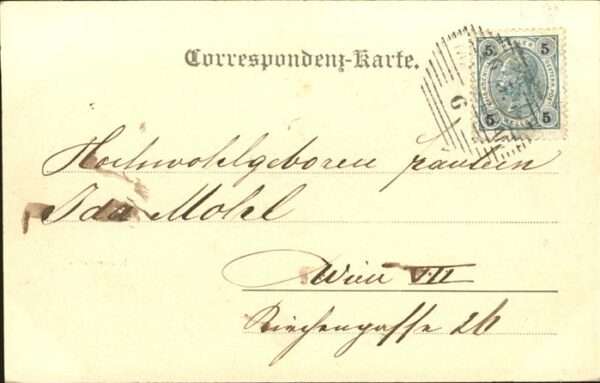 Correspondenz-Karte.
5 5
5 5
6
Hochwohlgeboren Fräulein
Ida Mohl
Wien VII
Kirchengasse 26